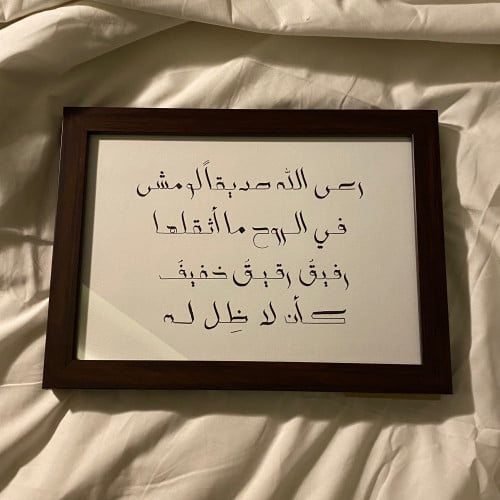 رعى الله صديقاً لو مشى
في الروح ما أثقلها
رفيقُ رقيقُ خفيفَ
كأن لا ظِل له